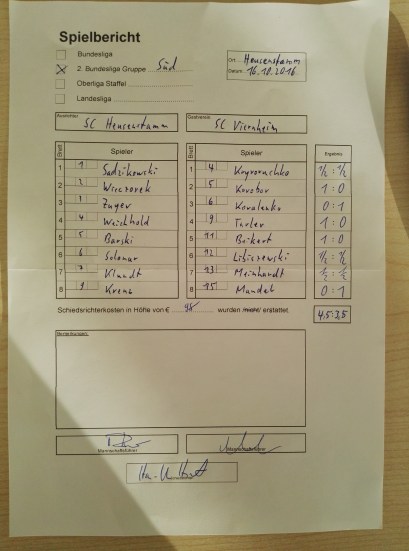 Spielbericht
Bundesliga
2. Bundesliga Gruppe Süd
Oberliga Staffel
Landesliga
Ort: Heusenstamm
Datum: 16.10.2016
Ausrichter:
SC Heusenstamm
Gastverein:
SC Viernheim
Brett Spieler Brett Spieler Ergebnis
1 1 Sadzikowski 1 4 ½ : ½
2 2 Wieczorek 2 5 Korobov 1 : 0
3 3 Zuyev 3 6 Kovalenko 0 : 1
4 4 Weichhold 4 9 1 : 0
5 5 Barski 5 11 1 : 0
6 6 6 12 Libiszewski ½ : ½
7 7 Klundt 7 13 Meinhardt ½ : ½
8 8 15 0 : 1
Schiedsrichterkosten in Höhe von € 98 wurden nicht erstattet
4,5:3,5
Bemerkungen:
Mannschaftsführer
Mannschaftsführer